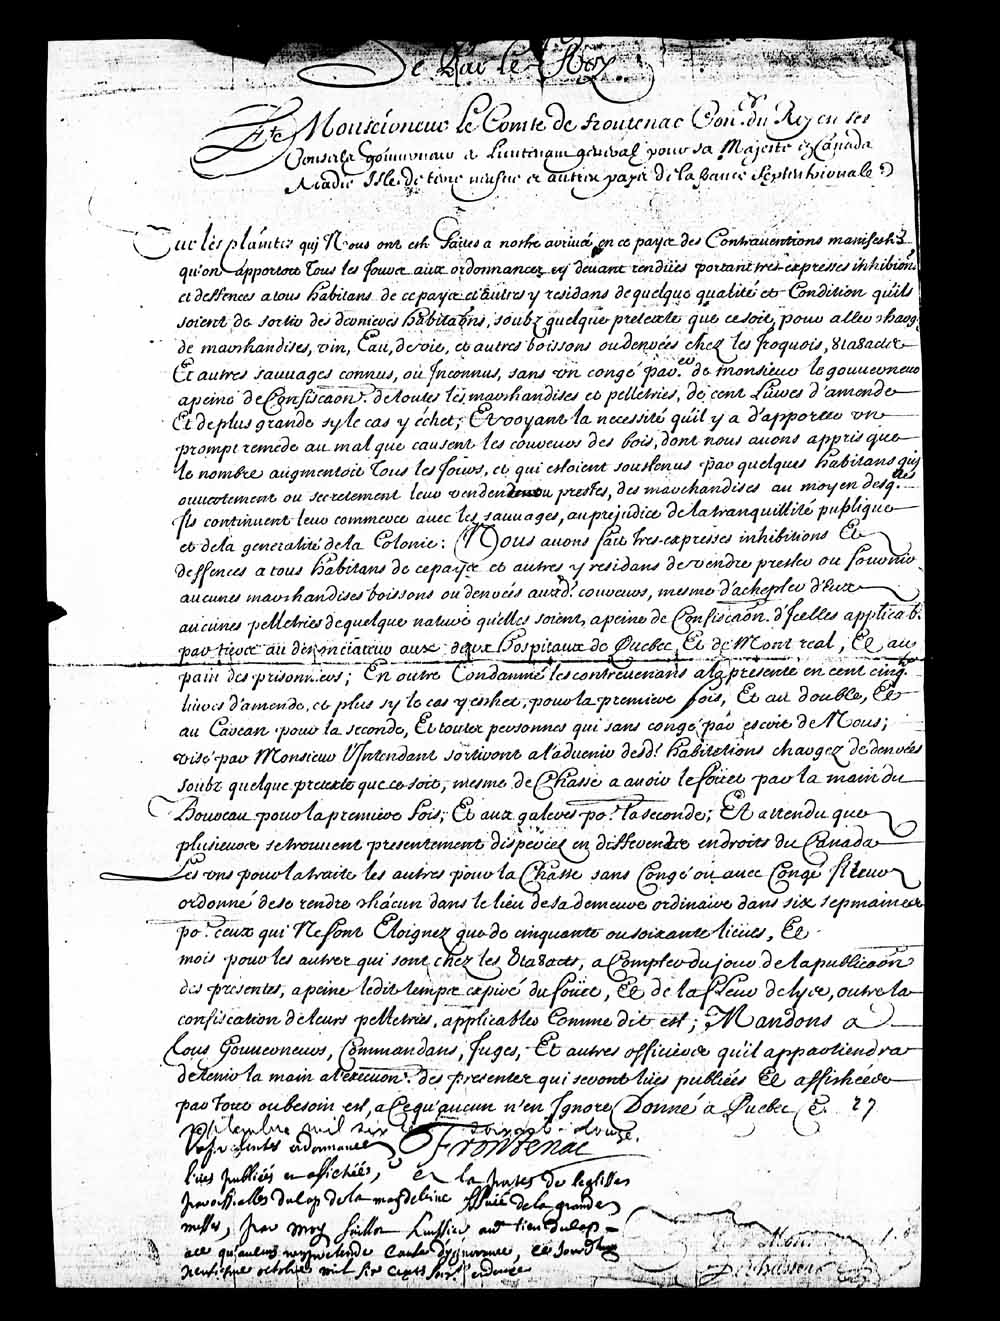 De Par le Roy
Et Monseigneur le Comte de frontenac Conr. du Roy en ses
Conseils gouverneur et Lieutenant general pour sa Majesté en Canada
Acadie Isle de terre neufve et autres payz de la france Septentrionale
Sur les plaintes quj Nous ont esté faites a nostre arrivée en ce payz des Contraventions manifestes
qu'on apportoit Tous les Jours aux ordonnances cy devant rendües portant tres expresses inhibions
et deffences a tous habitans de ce payz et autres y residans de quelque qualité et Condition qu'ils
soient de sortir des dernieres habitaons, soubz quelque pretexte que ce soit, pour aller charg.
de marchandises, vin, Eau, de vie, et autres boissons ou denrées chez les Iroquois, 8ta8acts
Et autres sauvages connus, ou Inconnus, sans un congé par Et. de monsieur le gouverneur
a peine de Confiscaon. de toutes les marchandises et pelletries, de cent Livres d'amende
Et de plus grande sy le cas y échet; Et voyant la necessité qu'il y a d'apporter un
prompt remede au mal que causent les coureurs des bois, dont nous avons appris que
le nombre augmentoit Tous les Jours, et qui estoient soustenus par quelques habitans quj
ouvertement ou secretement leur vendent ou prestes, des marchandises au moyen desq.lles
Ils continuent leur commerce avec les sauvages, au prejudice de la tranquillité publique
et de la generalité de la Colonie: Nous avons fait tres-expresses inhibitions Et
deffences a tous habitans de ce payz et autres y residans de vendre prester ou fournir
aucunes marchandises boissons ou denrées auxd. coureurs, mesme d'achepter d'Eux
aucunes pelletries de quelque nature qu'elles soient, a peine de Confiscaon. d'Icelles applicab.
par tiers au denonciateur aux deux hospitaux de Quebec, Et de Mont real, Et au
pain des prisonners; En outre Condamné les contrevenans a la presente en cent cinq.te
livres d'amende, et plus sy le cas y eschet, pour la premiere fois, Et au double, Et
au Carcan pour la seconde, Et toutes personnes qui sans congé par escrit de Nous;
visé par Monsieur l'Intendant sortiront a l'advenir desd. habitations chargez de denrées
soubz quelque pretexte que ce soit, mesme de Chasse a avoir le foüet par la main du
Bourreau pour la premiere fois, Et aux galeres po.r la seconde; Et attendu que
plusieurs se trouvent presentement dispercés en differends endroits du Canada
Les uns pour la traite les autres pour la Chasse sans Congé ou avec Congé Il leur
ordonné de se rendre chácun dans le lieu de sa demeure ordinaire dans six sepmaines
po.r ceux qui Ne sont Eloignez que de cinquante ou soixante lieües, Et
mois pour les autres qui sont chez les 8ta8acts, a Compter du jour de la publicaon
des presentes, a peine ledit temps expiré du foüet, Et de la fleur de lys, outre la
confiscation de leurs pelletries, applicables Comme dit est; Mandons a
Tous Gouverneurs, Commandans, Juges, Et autres officiers qu'il appartiendra
de tenir la main a l'execuon. des presentes qui seront lües publiées Et affichées
par Tout ou besoin est, a Ce qu'aucun n'en Ignore Donné a Quebec Ce 27
septembre mil six soixante-douze.
Frontenac
presentes ordonnances
lües publiées et affichées, a la porte de leglisse
parroissialle du Cap de la magdelaine issüe de la grande
messe, par moy
ace qu'aucuns nepretende Cause d'ignorance, ce
octobre mil six cents soix.te et douze